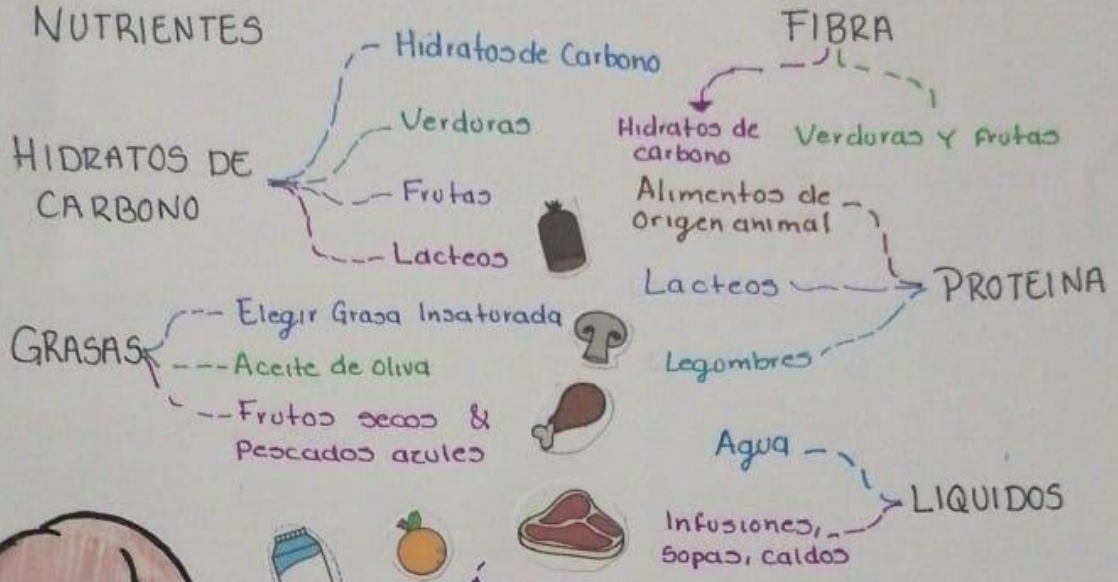 NUTRIENTES
HIDRATOS DE
CARBONO
Hidratos de Carbono
Verduras
Frutas
Lacteos
GRASAS
Elegir Grasa Insaturada
Aceite de oliva
Frutos secos &
Pescados azules
FIBRA
Hidratos de
carbono
Verduras Y frutas
Alimentos de
Origen animal
Lacteos
Legombres
PROTEINA
Agua
Infusiones,
Sopas, caldos
LIQUIDOS